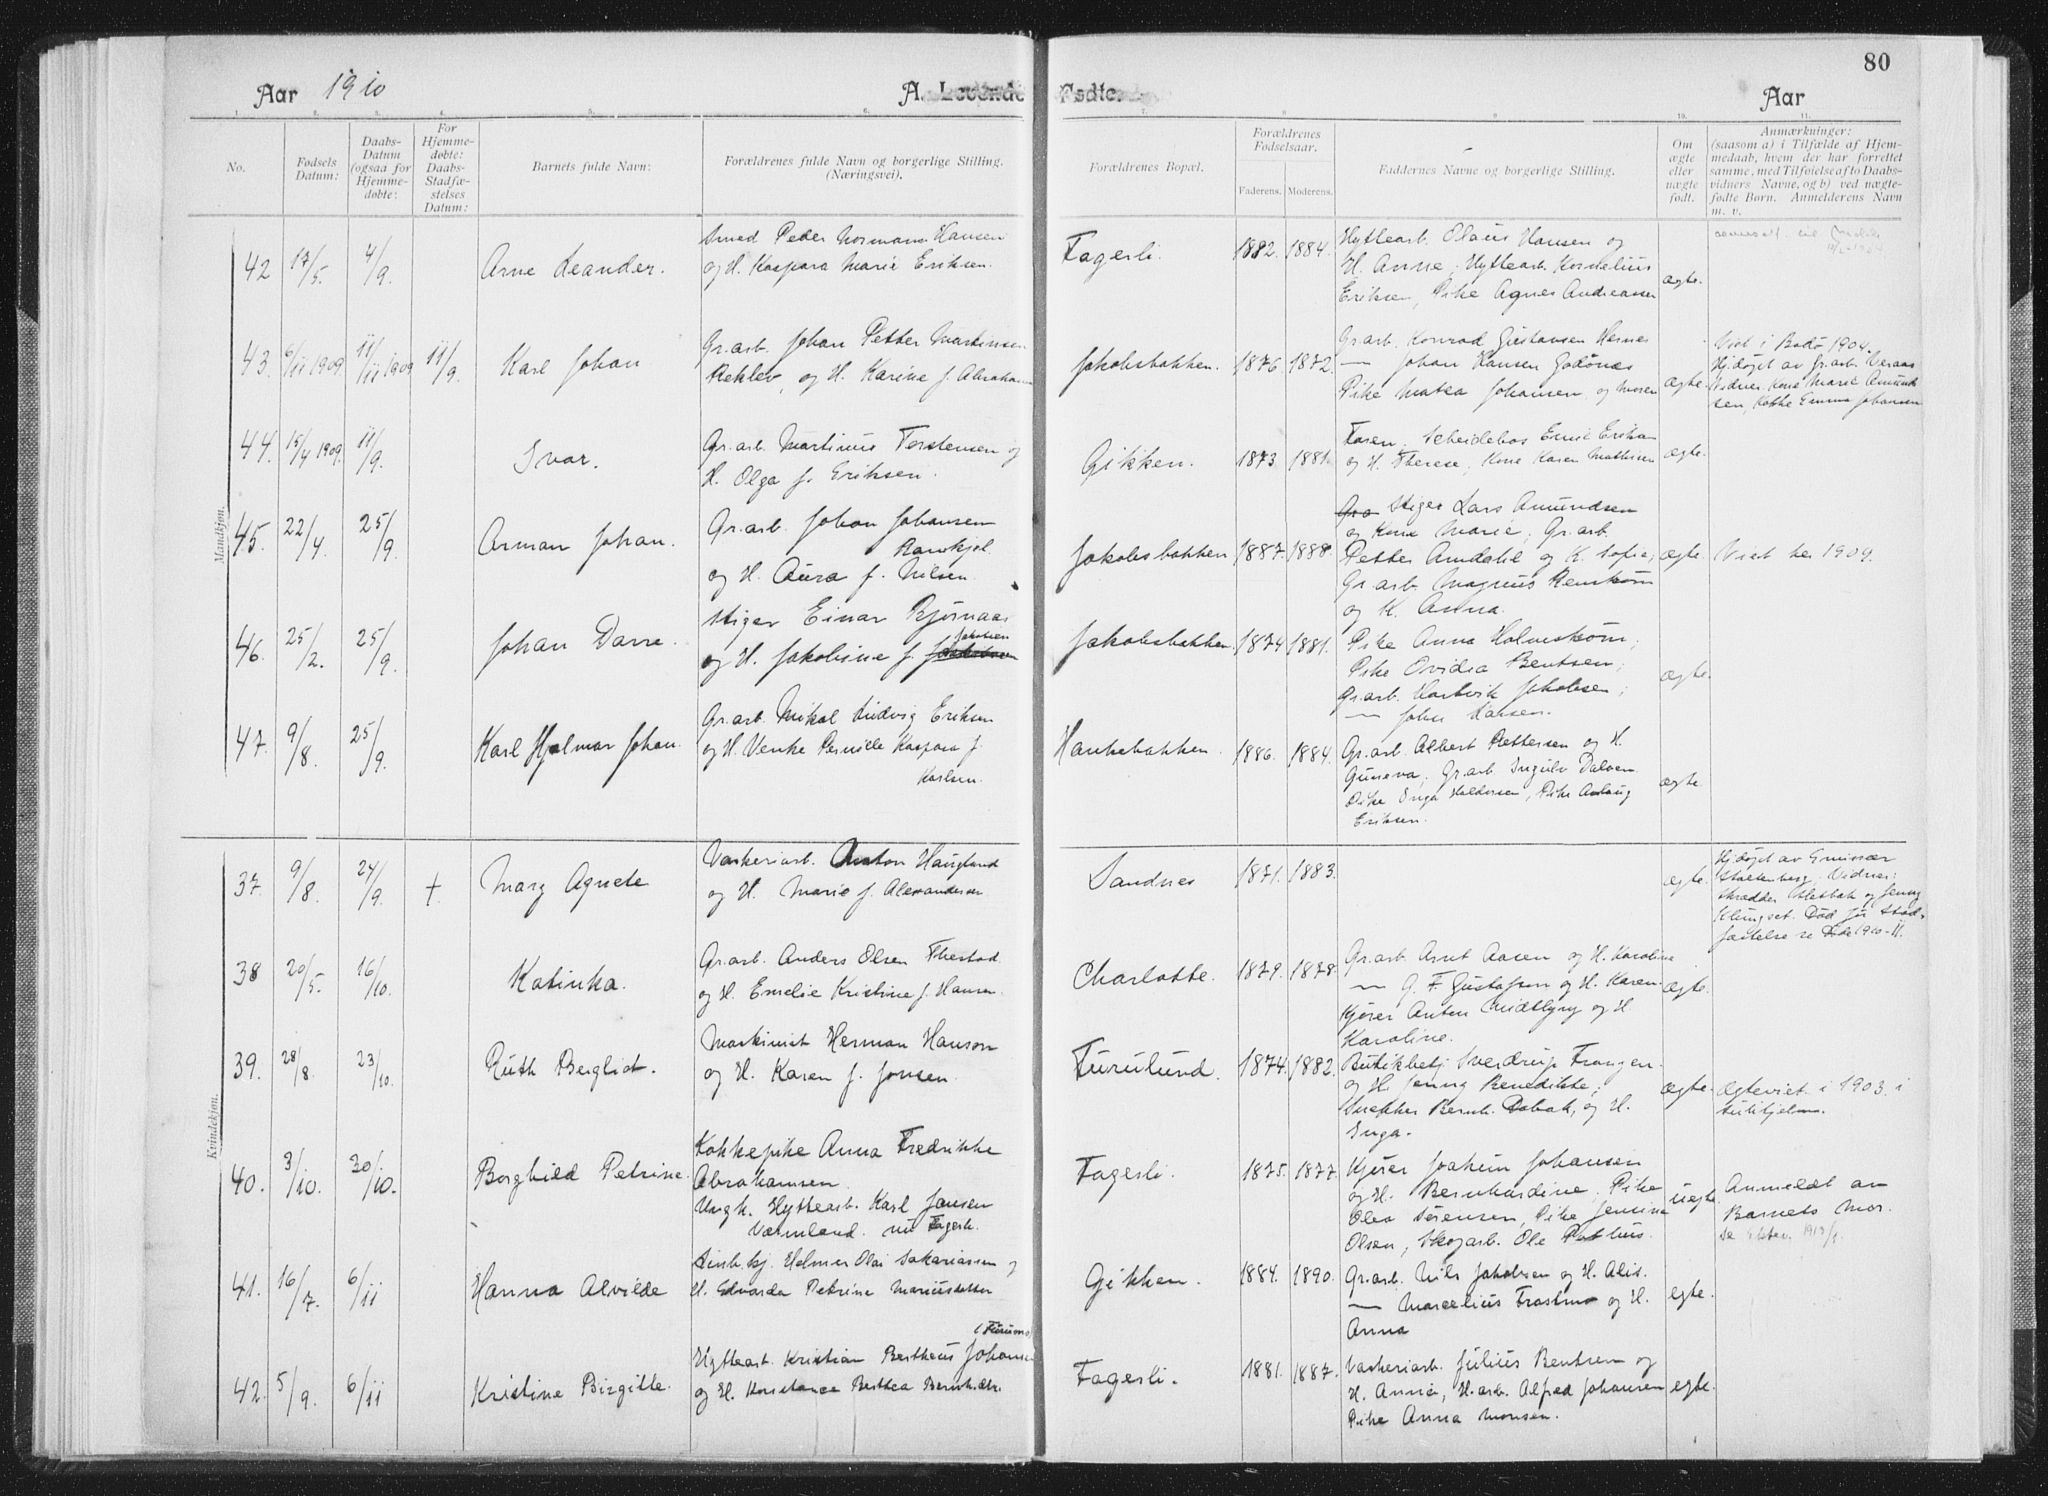 80
Aar 1910
A. Levende
Fødte.
Aar
1. 2. 3. 4. 5. 6. 7. 8. 9. 10. 11.
No.
Fødsels
Datum:
Daabs-
Datum
(ogsaa for
Hjemme-
døbte:
For
Hjemme-
døbte:
Daabs-
Stadfæ-
stelses
Datum:
Barnets fulde Navn:
Forældrenes fulde Navn og borgerlige Stilling.
(Næringsvei).
Forældrenes Bopæl.
Forældrenes
Fødselsaar.
Faderens. Moderens.
Faddernes Navne og borgerlige Stilling.
Om
ægte
eller
uægte
født.
Anmærkninger:
(saasom a) i Tilfælde af Hjem-
medaab, hvem der har forrettet
samme, med Tilføielse af to Daabs-
vidners Navne, og b) ved uægte-
fødte Børn. Anmelderens Navn
m. v.
Mandkjøn.
42 17/5. 4/9. Arne Leander.
Smed Peder Normann Hansen
og H. Kaspara Marie Eriksen.
Fagerli. 1882. 1884.
Hyttearb. Olaus Hansen og
H. Anne, Hyttearb. Kornelius
Eriksen, Pike Agnes Andreassen
ægte.
43. 6/11 1909 11/11 1909 11/9. Karl Johan
Gr.arb. Johan Petter Martinsen
og H. Karine f. Abraham
Jakobsbakken. 1876 1872.
Gr.arb. Konrad Gustavsen Hernes
— Johan Hansen Godønes
Pike Matea Johansen, og moren
ægte.
Viet i Bodø 1904.
Hj.døpt av Gr.arb. Veraas
Vidner Kone Marie Amund
sen, Kokke Emma Johansen
44. 15/4 1909. 11/9. Ivar.
Gr.arb. Martinus Torstensen og
H. Olga f. Eriksen.
Gikken. 1873. 1881.
Faren. Scheidebas Emil Erikse
og H. Therese, Kone Karen Mathisen
ægte.
45. 22/4. 25/9. Arman Johan.
Gr.arb. Johan Johansen
og H. Aura f. Nilsen.
Jakobsbakken 1887. 1888.
Stiger Lars Amundsen
og Kone Marie, Gr.arb.
Petter Amdahl og K. Sofie;
Gr.arb. Magnus Renstrøm
og K. Anna.
ægte.
Viet her 1909.
46. 25/2. 25/9. Johan Darre.
Stiger Einar Bjørnaas
og H. Jakobine f. Jakobsen
Jakobsbakken 1874 1881.
Pike Anna Holmstrøm;
Pike Ovidia Bentsen;
Gr.arb. Hartvik Jakobsen;
— John Hansen.
ægte.
47. 9/8. 25/9. Karl Hjalmar Johan.
Gr.arb. Mikal Ludvig Eriksen
og H. Venke Pernille Kaspara f.
Karlsen.
Hankabakken. 1886. 1884.
Gr.arb. Albert Pettersen og H.
Guneva, Gr.arb Ingulv Dalven
Pike Inga Haldorsen, Pike Aslaug
Eriksen.
ægte.
Kvindekjøn.
37. 9/8. 24/9. + Mary Agnete
Vaskeriarb. Anton Haugland
og H. Marie f. Alexandersen
Sandnes 1871. 1883.
ægte.
Hj.døpt av Emissær
Stoltenberg. Vidner:
Skrædder Klesbak og Jenny
Klungset. Død før Stad-
fæstelse se Døde 1910-11.
38 20/5. 16/10. Katinka.
Gr.arb. Anders Olsen Thestad
og H. Emelie Kristine f. Hansen
Charlotte. 1879. 1878.
Gr.arb. Arnt Aasen og H. Karoline
— G. F. Gustafson og H. Karen
Kjører Anton Midtbyry og H.
Karoline.
ægte.
39. 28/8. 23/10. Ruth Bergliot.
Maskinist Herman Hanson
og H. Karen f. Jonsen.
Furulund. 1874. 1882.
Butikkbetj. Sverdrup Frangen
og H. Jenny Benedikte;
Snekker Bernh. Dobak, og H.
Inga.
ægte.
Ægteviet i 1903 i
Sulitjelma.
40. 3/10. 30/10. Borghild Petrine.
Kokkepike Anna Fredrikke
Abrahamsen.
Ungk. Hyttearb. Karl Jansen
Værmland. nu Fagerli.
Fagerli. 1875. 1877.
Kjører Joakim Johansen
og H. Bernhardine, Pike
Olea Sørensen, Pike Jensine
Olsen, Skogarb. Ole
uegte.
Anmeldt av
Barnets Mor.
41. 16/7. 6/11 Hanna Alvilde
Helmer Olai Sakariassen og
H. Edvarda Petrine Mariusdatter
Gikken. 1884. 1890.
Gr.arb. Nils Jakobsen og H. Alis.
— Marcelius Frastmo og H.
Anna
egte.
42. 5/9. 6/11 Kristine Birgitte.
Hyttearb. Kristian Bertheus Johansen
og H. Konstance Berthea Bernhdtr.
Fagerli. 1881. 1887.
Vaskeriarb. Julius Bentsen og
H. Annie, H.arb. Alfred Johansen
Pike Anna Monsen.
egte.